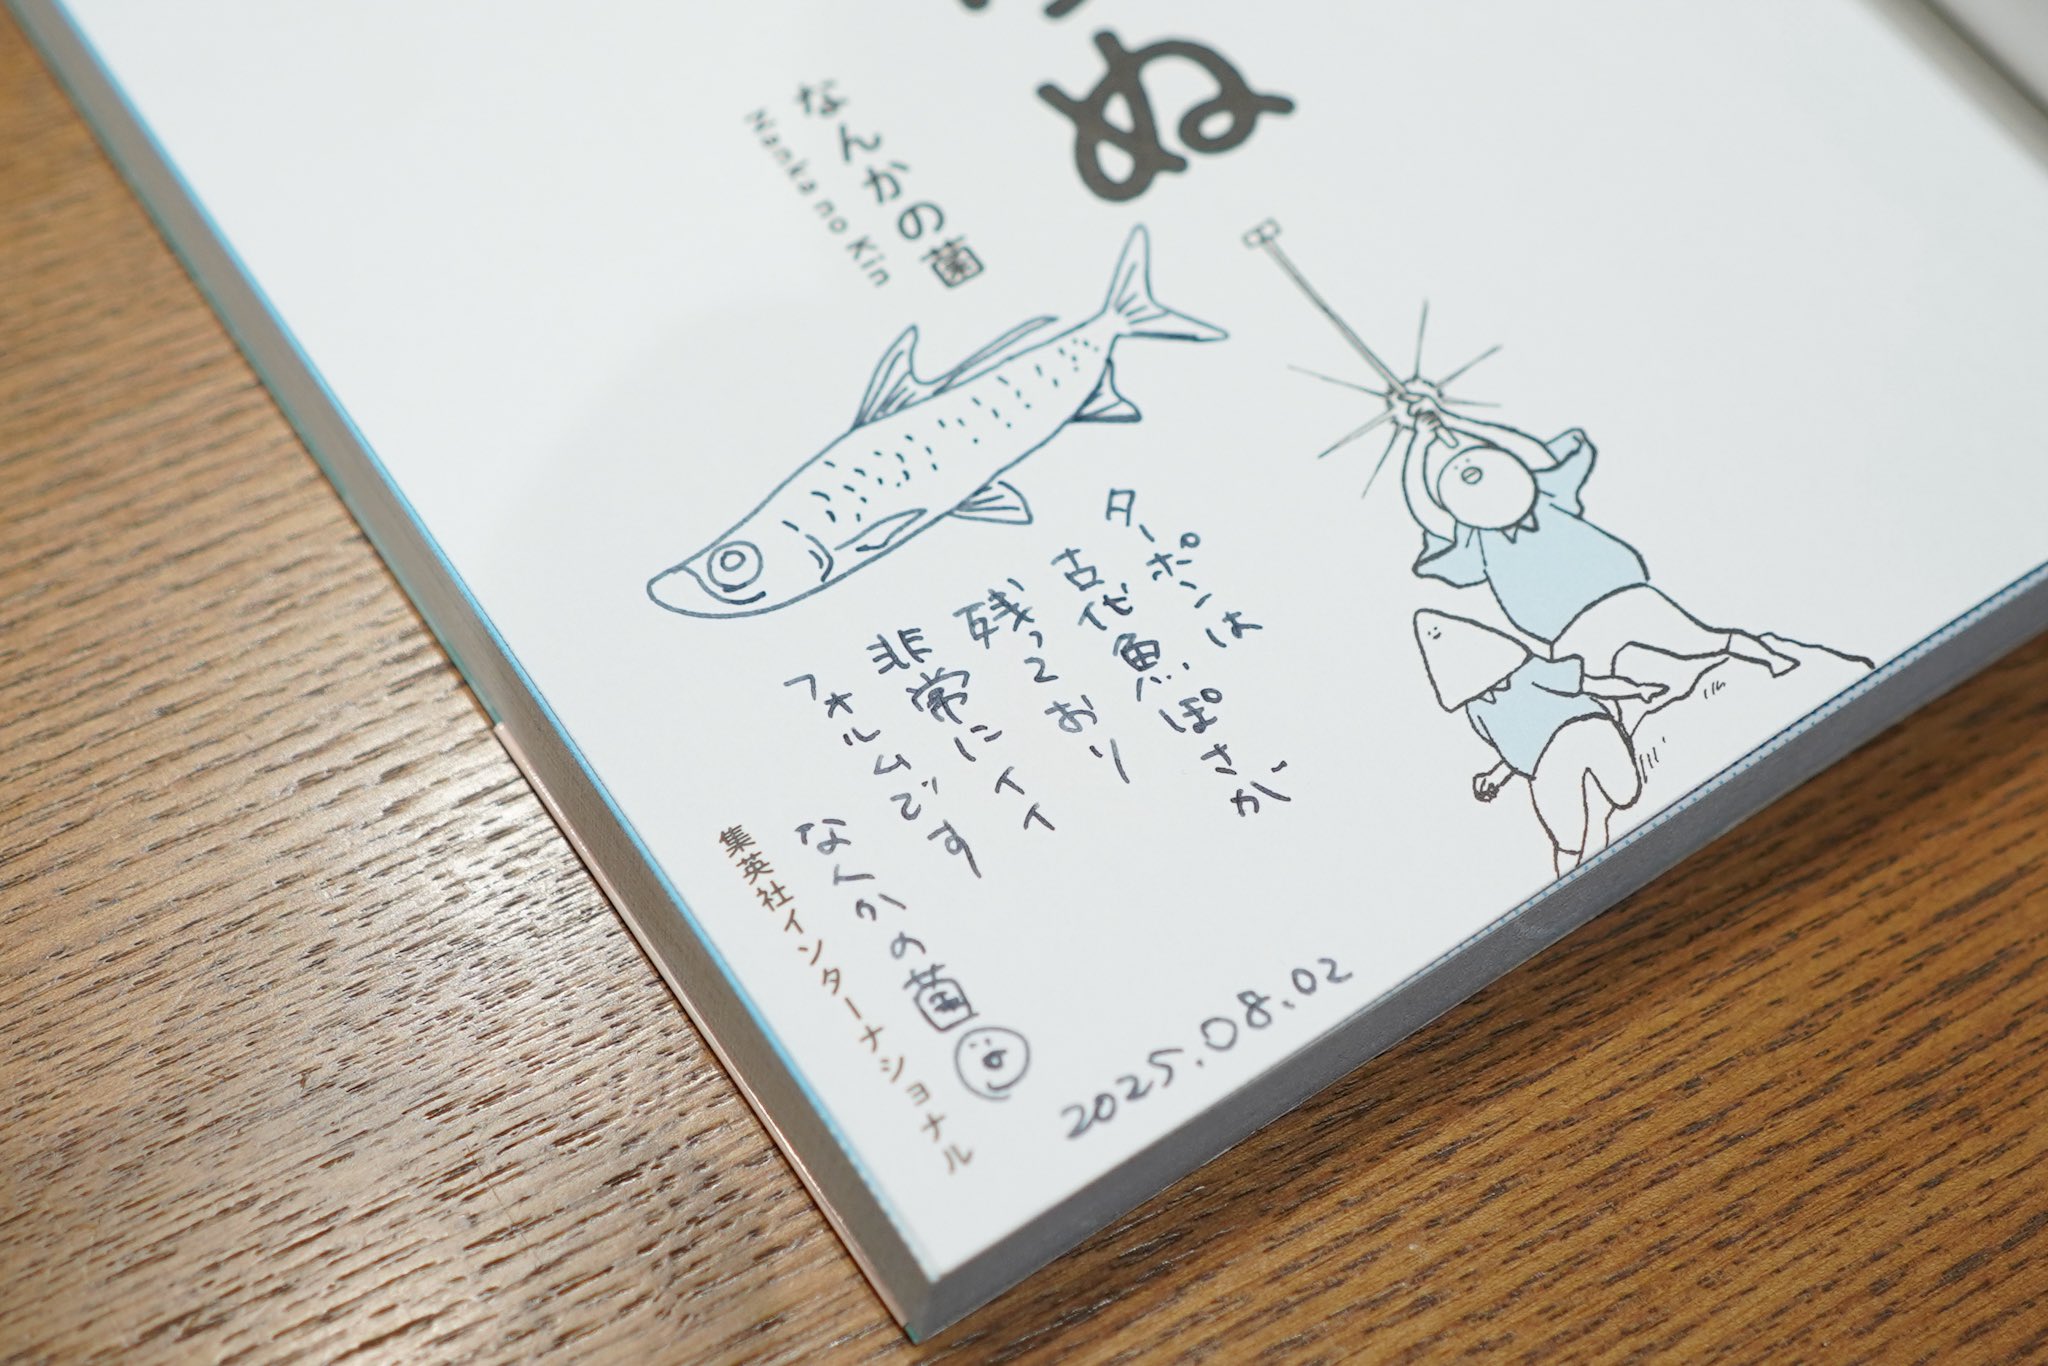 ぬ
なんかの菌
Nanka no Kin
ターポンは
古代魚っぽさが
残っており
非常にイイ
フォルムです
なんかの菌
集英社インターナショナル
2025.08.02